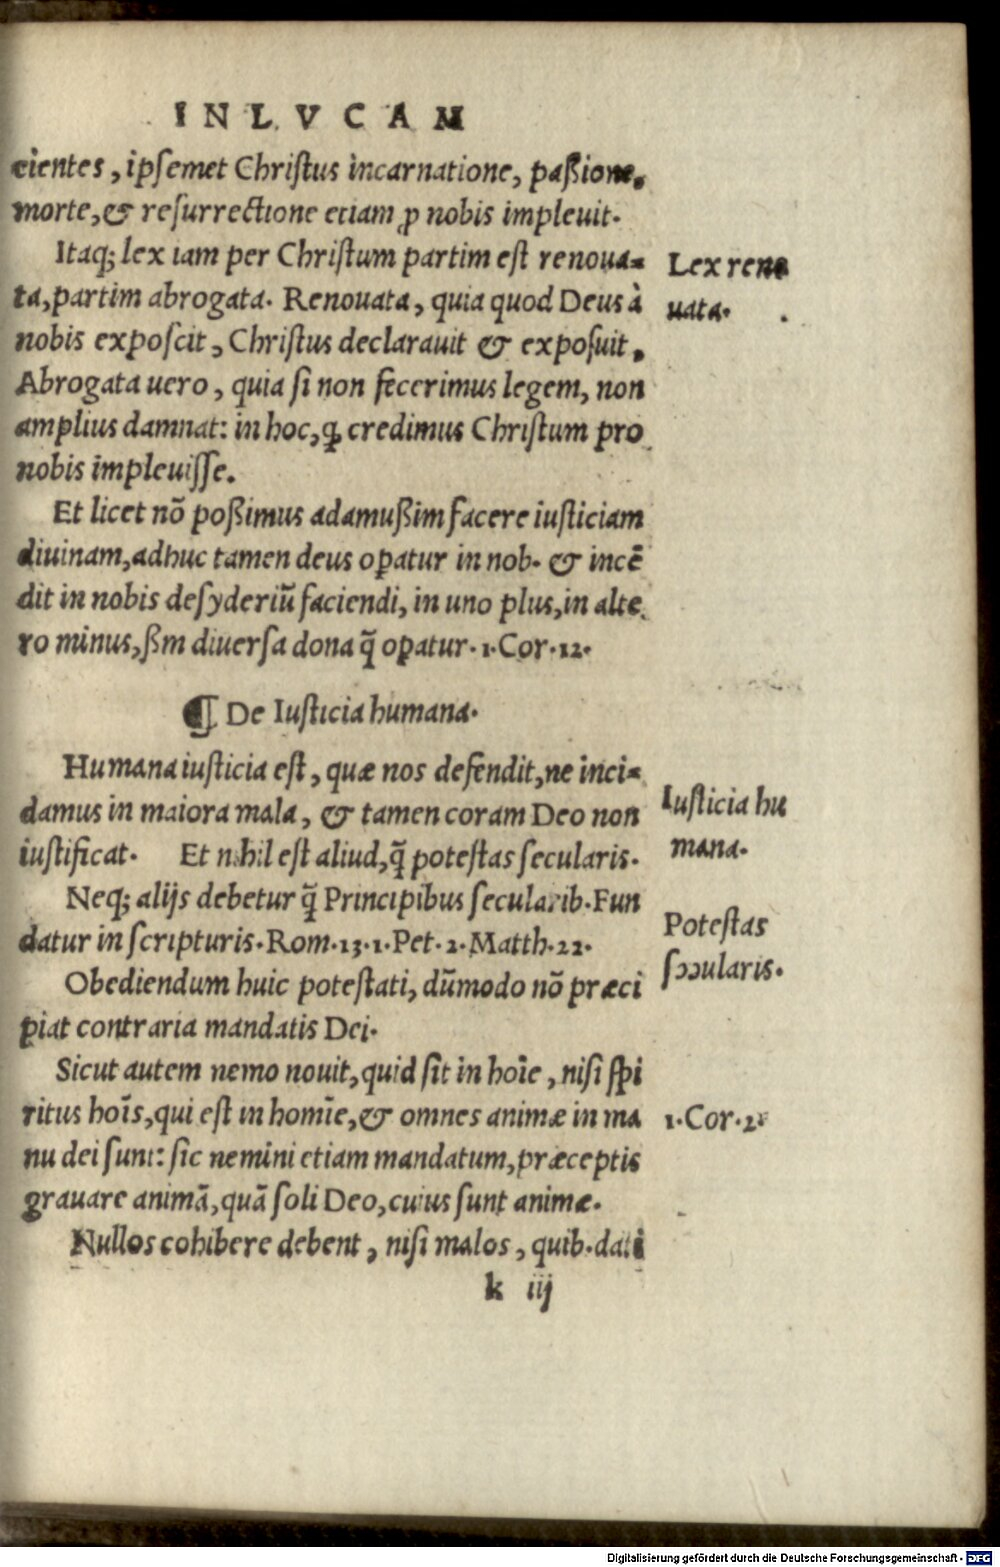 IN LVCAM
cientes, ipsemet Chriſtus incarnatione, paßione,
morte, & reſurrectione etiam ꝓ nobis impleuit.
Itaq; lex iam per Chriſtum partim eſt renoua-
ta, partim abrogata. Renouata, quia quod Deus à
nobis expoſcit, Chriſtus declarauit & expoſuit,
Abrogata uero, quia ſi non fecerimus legem, non
amplius damnat: in hoc, ꝙ credimus Chriſtum pro
nobis impleuiſſe.
Et licet nō poßimus adamußim facere iuſticiam
diuinam, adhuc tamen deus opatur in nob. & incē
dit in nobis deſyderiū faciendi, in uno plus, in alte
ro minus, ßm diuerſa dona q̃ opatur. 1. Cor. 12.
¶ De Iuſticia humana.
Humana iuſticia eſt, quæ nos defendit, ne inci-
damus in maiora mala, & tamen coram Deo non
iuſtificat. Et nihil eſt aliud, q̃ poteſtas ſecularis.
Neq; alijs debetur q̃ Principibus ſecularib. Fun
datur in ſcripturis. Rom. 13. 1. Pet. 2. Matth. 22.
Obediendum huic poteſtati, dūmodo nō præci
piat contraria mandatis Dei.
Sicut autem nemo nouit, quid ſit in hoīe, niſi ſpi
ritus hoīs, qui eſt in homīe, & omnes animæ in ma
nu dei ſunt: ſic nemini etiam mandatum, præceptis
grauare animā, quā ſoli Deo, cuius ſunt animæ.
Nullos cohibere debent, niſi malos, quib. dati
k iij
Lex reno
uata.
Iuſticia hu
mana.
Poteſtas
ſecularis.
1. Cor. 2.
Digitalisierung gefördert durch die Deutsche Forschungsgemeinschaft - DFG